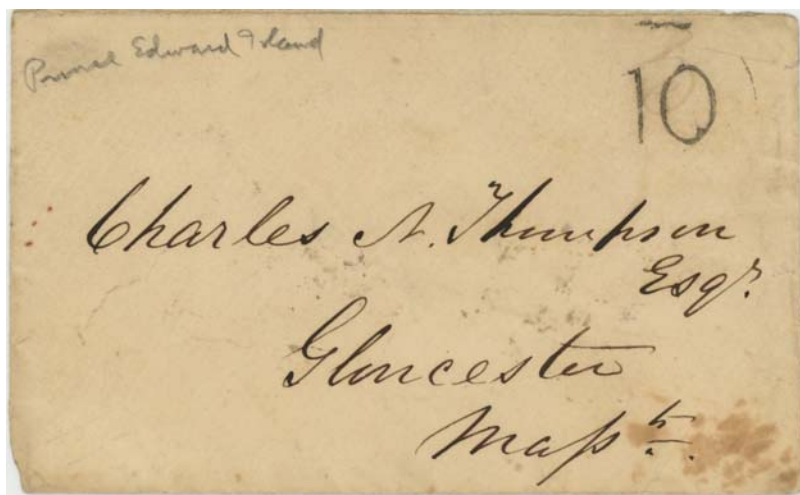 Prince Edward Island
10
Charles A. Thompson
Esqr.
Gloucester
Massts.